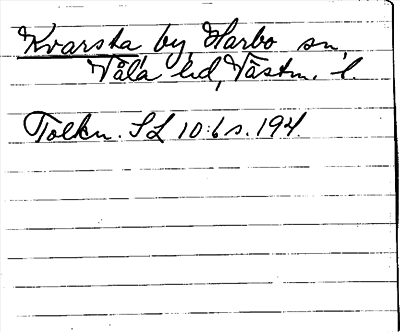 Kvarsta by, Harbo sn,
Våla hd, Västm. l.
Tolkn. SL 10:6 s. 194.